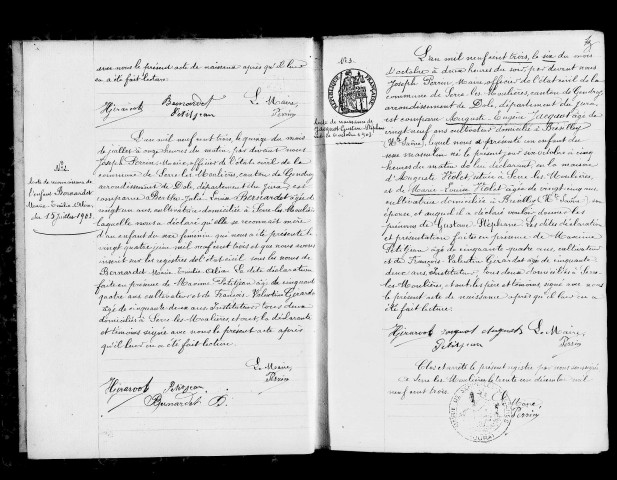 avec nous le présent acte de naissance après qu'il leur
en a été fait lecture.
Bernardot
Petitjean
Le Maire,
Perrin
N° 2
Acte de naissance de
l'enfant Bernardot
Marie Emilia Olina,
du 15 juillet 1903.
L'an mil neuf cent trois, le quinze du mois
de juillet à heures du matin, par devant nous
Joseph Perrin Maire, officier de l'état civil de la
commune de Sère les Moulières, canton de Gendrey
arrondissement de Dole, département du Jura, est
comparue Berthe Julie Louise Bernardot âgée de
vingt un ans, cultivatrice domiciliée à Sère les Moulières
laquelle nous a déclaré qu'elle se reconnait mère
d'un enfant du sexe féminin qui nous a été présenté le
vingt quatre juin mil neuf cent trois et que nous avons
inscrit sur les registres de l'état civil sous les noms de
Bernardot Marie Emilia Olina. La dite déclaration
faite en présence de Maxime Petitjean âgé de cinquante
quatre ans cultivateur et de François Valentin Girardot
âgé de cinquante deux ans, Instituteur, tous deux
domiciliés à Sère les Moulières, et ont la déclarante
et témoins signé avec nous le présent acte après
qu'il leur en a été fait lecture.
Le Maire,
Perrin
Petitjean
Bernardot B.
N° 3
Acte de naissance de
Jacquot Gustave Stéphane
L'an mil neuf cent trois, le six du mois
d'octobre à deux heures du soir, par devant nous
Joseph Perrin Maire, officier de l'état civil de la
commune de Sère les Moulières, canton de Gendrey
arrondissement de Dole, département du Jura,
est comparu Auguste Eugène Jacquot âgé de
vingt neuf ans cultivateur domicilié à Bresilley
(Hte Saône), lequel nous a présenté un enfant du
sexe masculin né le présent jour six octobre à cinq
heures du matin de lui déclarant, en la maison
d'Auguste Violet, située à Sère les Moulières,
et de Marie Louise Violet âgée de vingt cinq ans,
cultivatrice domiciliée à Bresilley (Hte Saône) son
épouse et auquel il a déclaré vouloir donner les
prénoms de Gustave Stéphane. Les dites déclaration
et présentation faites en présence de Maxime
Petitjean âgé de cinquante quatre ans, cultivateur
et de François Valentin Girardot âgé de cinquante
deux ans, Instituteur, tous deux domiciliés à Sère
les Moulières, et ont les père et témoins signé avec nous
le présent acte de naissance après qu'il leur en a
été fait lecture.
Jacquot Auguste
Petitjean
Le Maire,
Perrin
Clos et arrêté le présent registre par nous maire
à Sère les Moulières, le trente un décembre mil
neuf cent trois.
Le Maire
Perrin